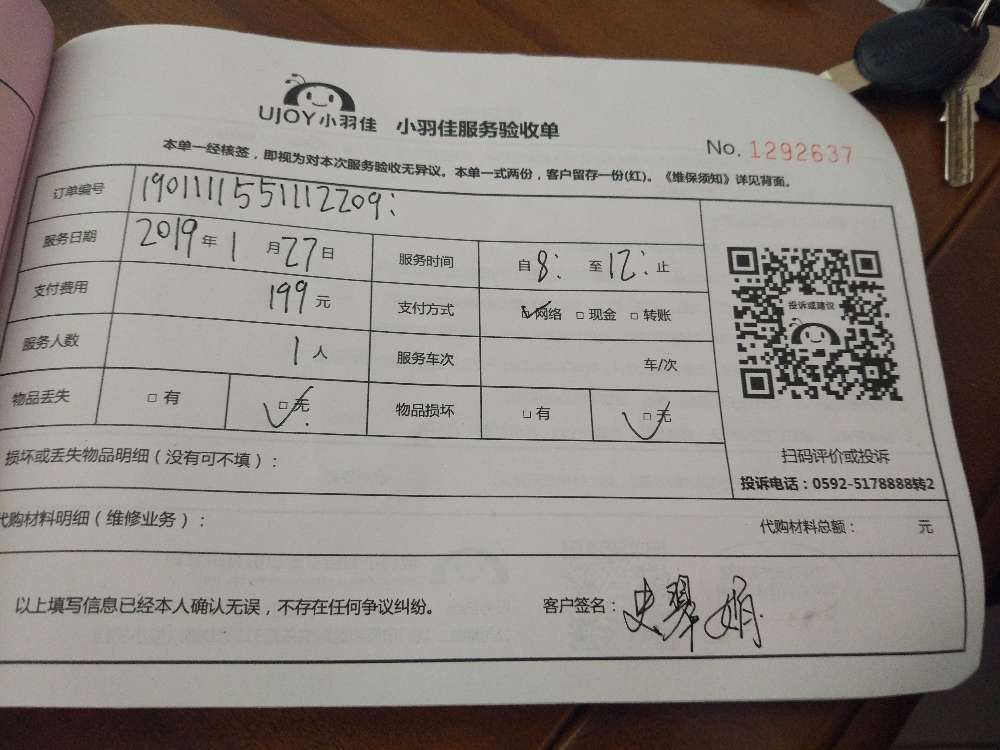 UJOY小羽佳 小羽佳服务验收单
No. 1292637
本单一经核签，即视为对本次服务验收无异议。本单一式两份，客户留存一份(红)。《维保须知》详见背面。
订单编号 1901111551112209：
服务日期 2019年1月27日 服务时间 自8：至12：止
支付费用 199元 支付方式 网络 现金 转账
服务人数 1人 服务车次 车/次
物品丢失 有 无 物品损坏 有 无
投诉或建议
扫码评价或投诉
投诉电话：0592-5178888转2
损坏或丢失物品明细（没有可不填）：
代购材料明细（维修业务）： 代购材料总额： 元
以上填写信息已经本人确认无误，不存在任何争议纠纷。 客户签名：史翠娟